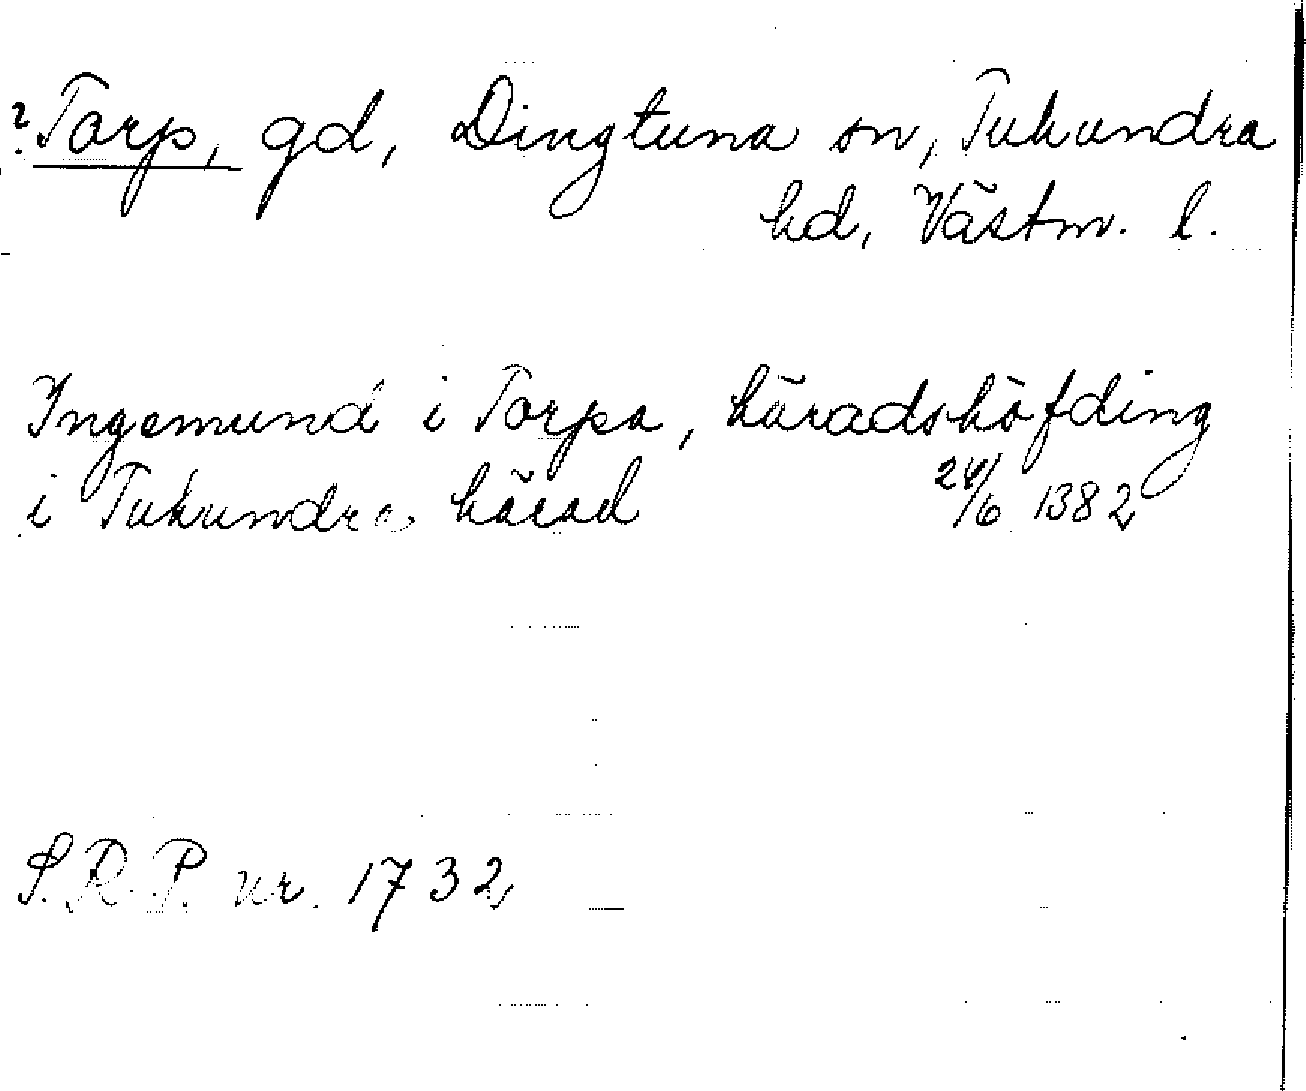 ? Torp, gd, Dingtuna sn, Tuhundra
hd, Västm. l.
Ingemund i Torpa, häradshöfding
i Tuhundra härad 24/6 1382
S.R.P. nr. 1732